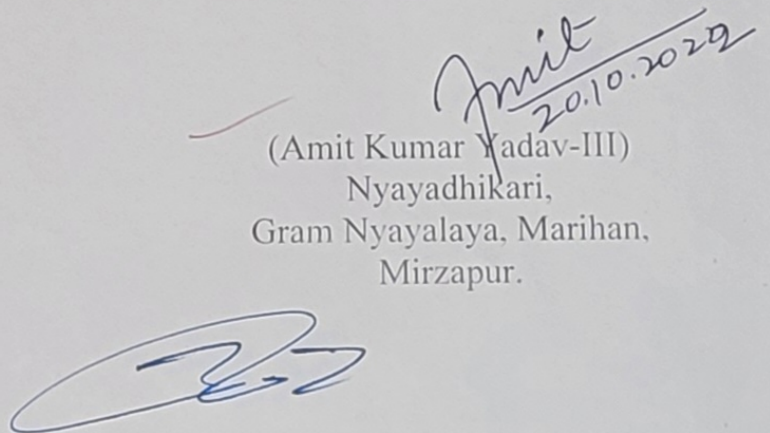 Amit
20.10.2022
(Amit Kumar Yadav-III)
Nyayadhikari,
Gram Nyayalaya, Marihan,
Mirzapur.